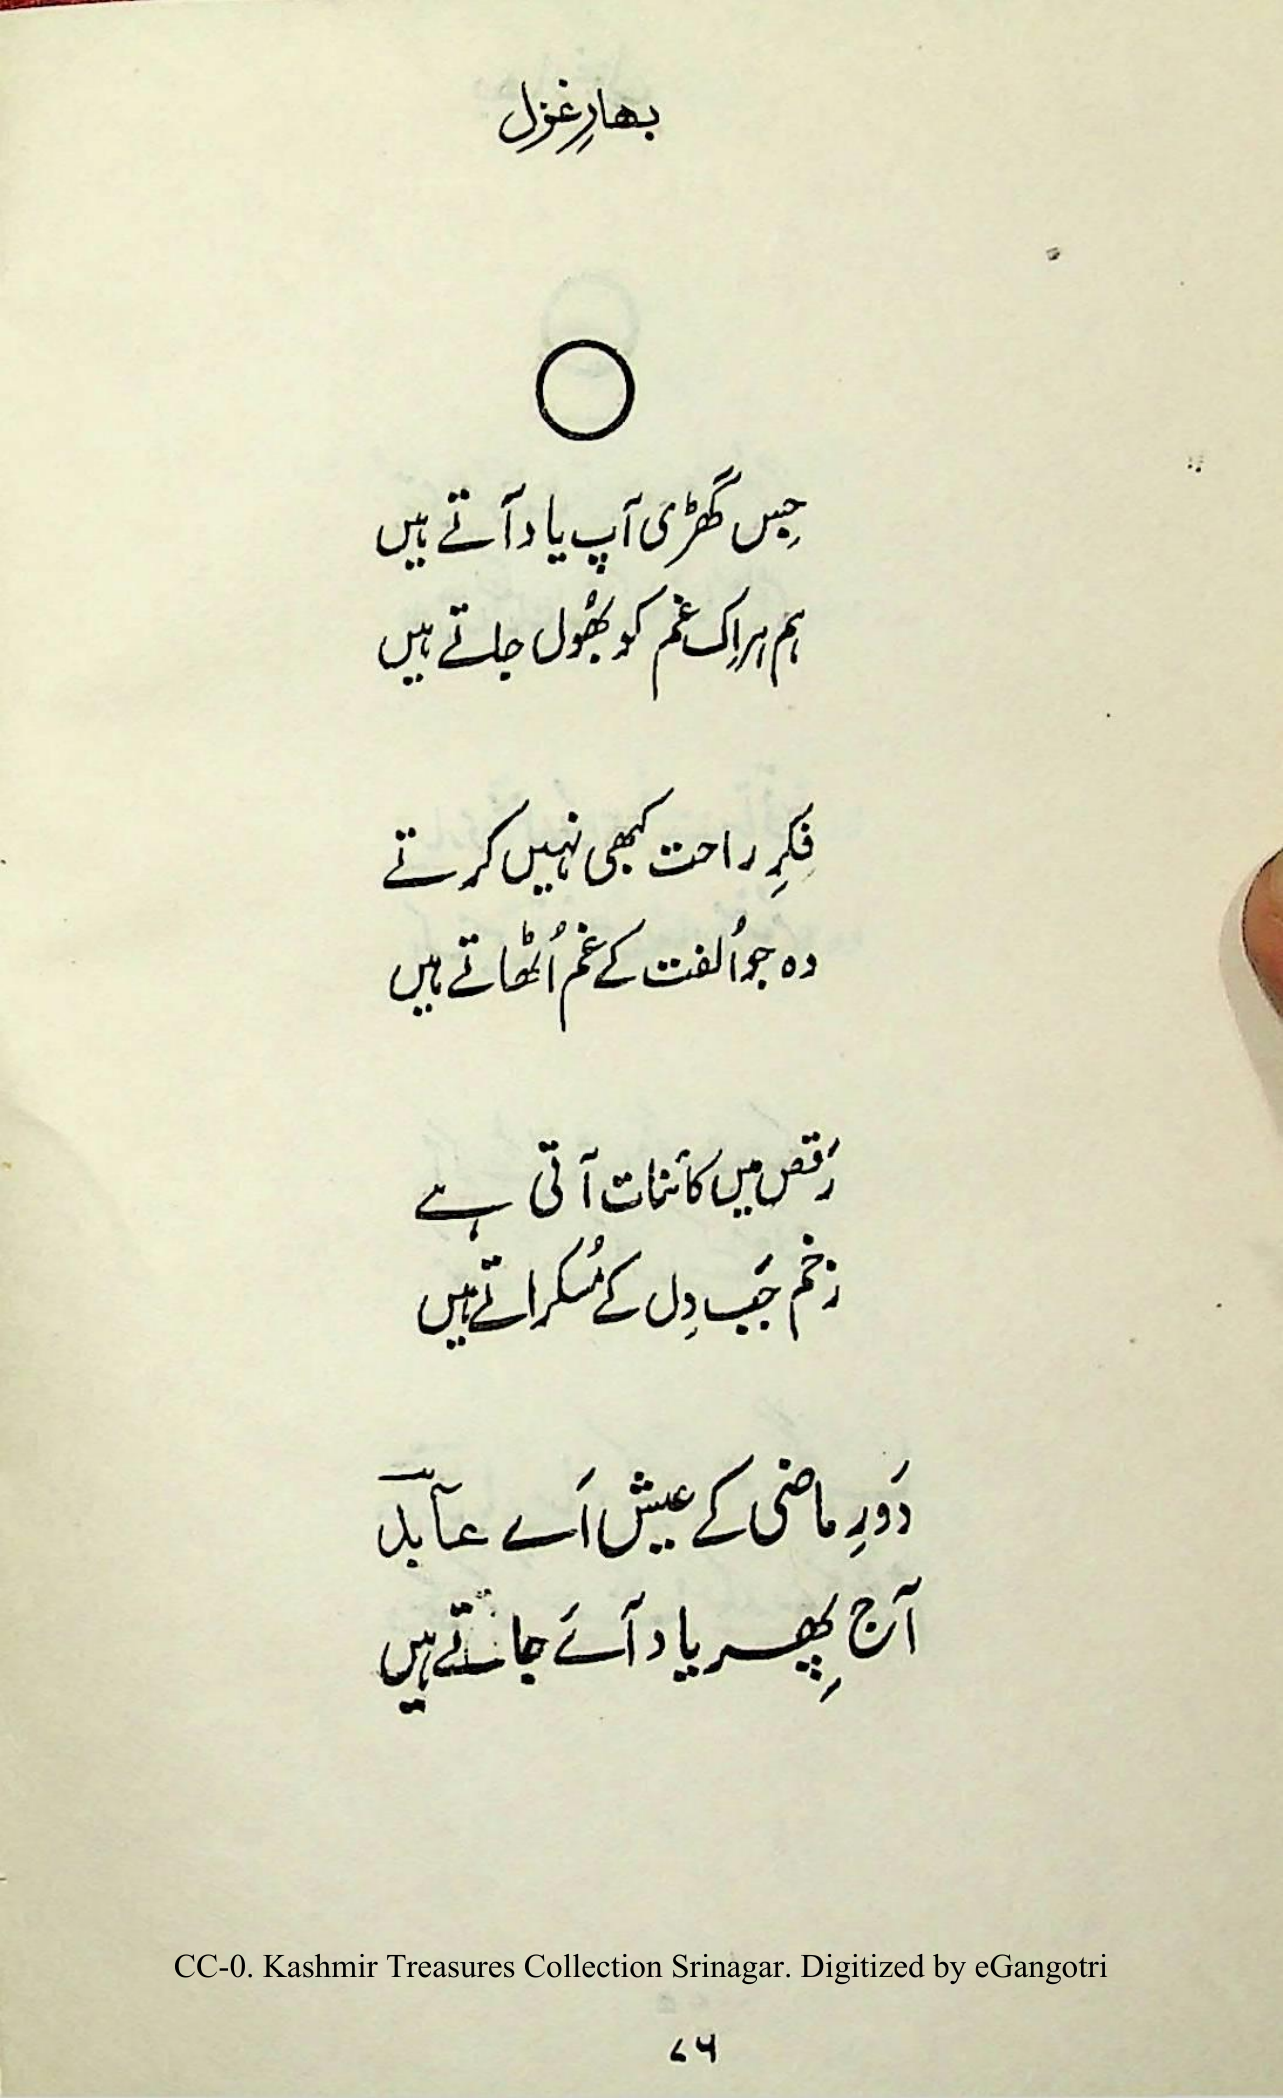 بھارِ غزل
جِس گھڑی آپ یاد آتے ہیں
ہم ہر اِک غم کو بھُول جاتے ہیں
فِکرِ راحت کبھی نہیں کرتے
وہ جو اُلفت کے غم اُٹھاتے ہیں
رَقص میں کائنات آتی ہے
زخم جَب دِل کے مُسکراتے ہیں
دَورِ ماضی کے عیش اَے عابدؔ
آج پِھر یاد آئے جاتے ہیں
CC-0. Kashmir Treasures Collection Srinagar. Digitized by eGangotri
۷۶